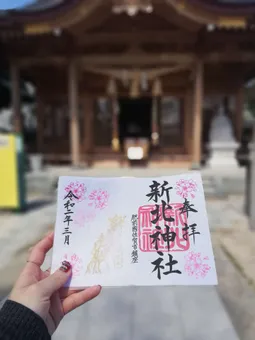 奉拝
新北神社
肥前國佐賀市諸富
令和二年三月